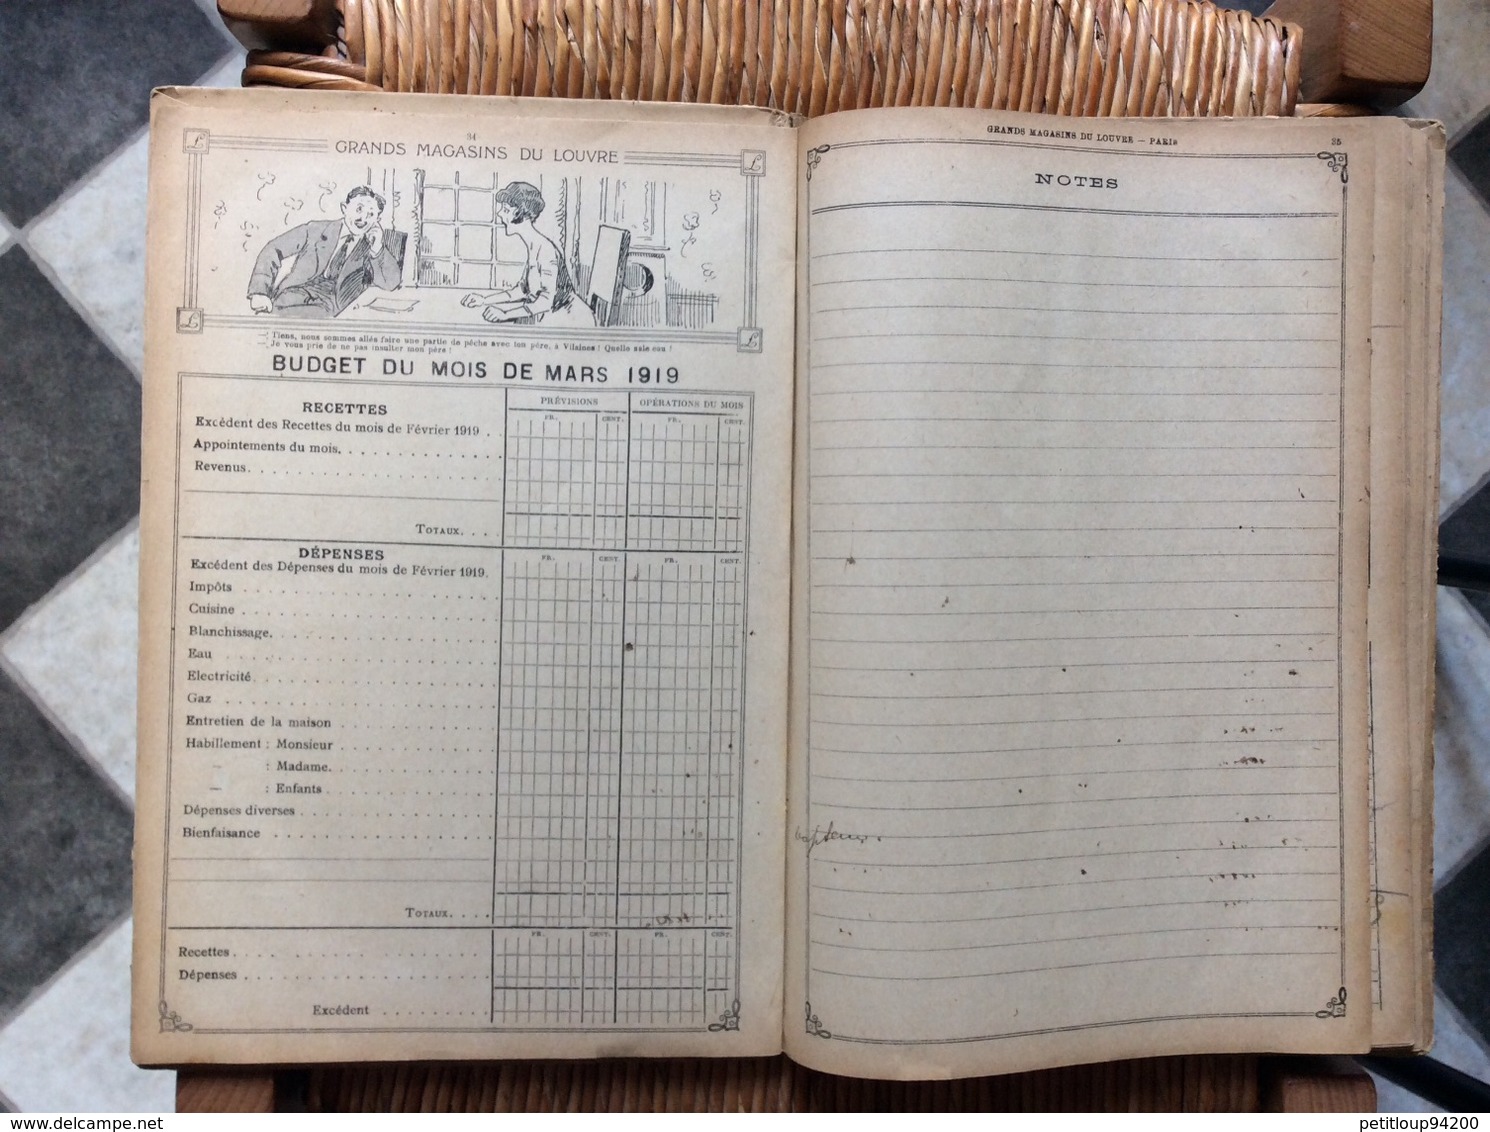 34
GRANDS MAGASINS DU LOUVRE
— Tiens, nous sommes allés faire une partie de pêche avec ton père, à Vilaines ! Quelle sale eau !
— Je vous prie de ne pas insulter mon père !
BUDGET DU MOIS DE MARS 1919
PRÉVISIONS OPÉRATIONS DU MOIS
RECETTES
FR. CENT. FR. CENT.
Excédent des Recettes du mois de Février 1919 . .
Appointements du mois. . . . . . . . . . . . .
Revenus. . . . . . . . . . . . . . . . . . .
TOTAUX. . .
DÉPENSES
FR. CENT. FR. CENT.
Excédent des Dépenses du mois de Février 1919.
Impôts . . . . . . . . . . . . . . . . . . .
Cuisine . . . . . . . . . . . . . . . . . . .
Blanchissage. . . . . . . . . . . . . . . . .
Eau . . . . . . . . . . . . . . . . . . . .
Electricité. . . . . . . . . . . . . . . . . .
Gaz . . . . . . . . . . . . . . . . . . . .
Entretien de la maison . . . . . . . . . . . .
Habillement : Monsieur . . . . . . . . . . . .
— : Madame. . . . . . . . . . . . .
— : Enfants . . . . . . . . . . . . .
Dépenses diverses . . . . . . . . . . . . . . .
Bienfaisance . . . . . . . . . . . . . . . . .
TOTAUX. . . .
FR. CENT. FR. CENT.
Recettes . . . . . . . . . . . . . . . . . .
Dépenses . . . . . . . . . . . . . . . . . .
Excédent . . . . . . . .
GRANDS MAGASINS DU LOUVRE — PARIS
35
NOTES
http://www.delcampe.net
petitloup94200